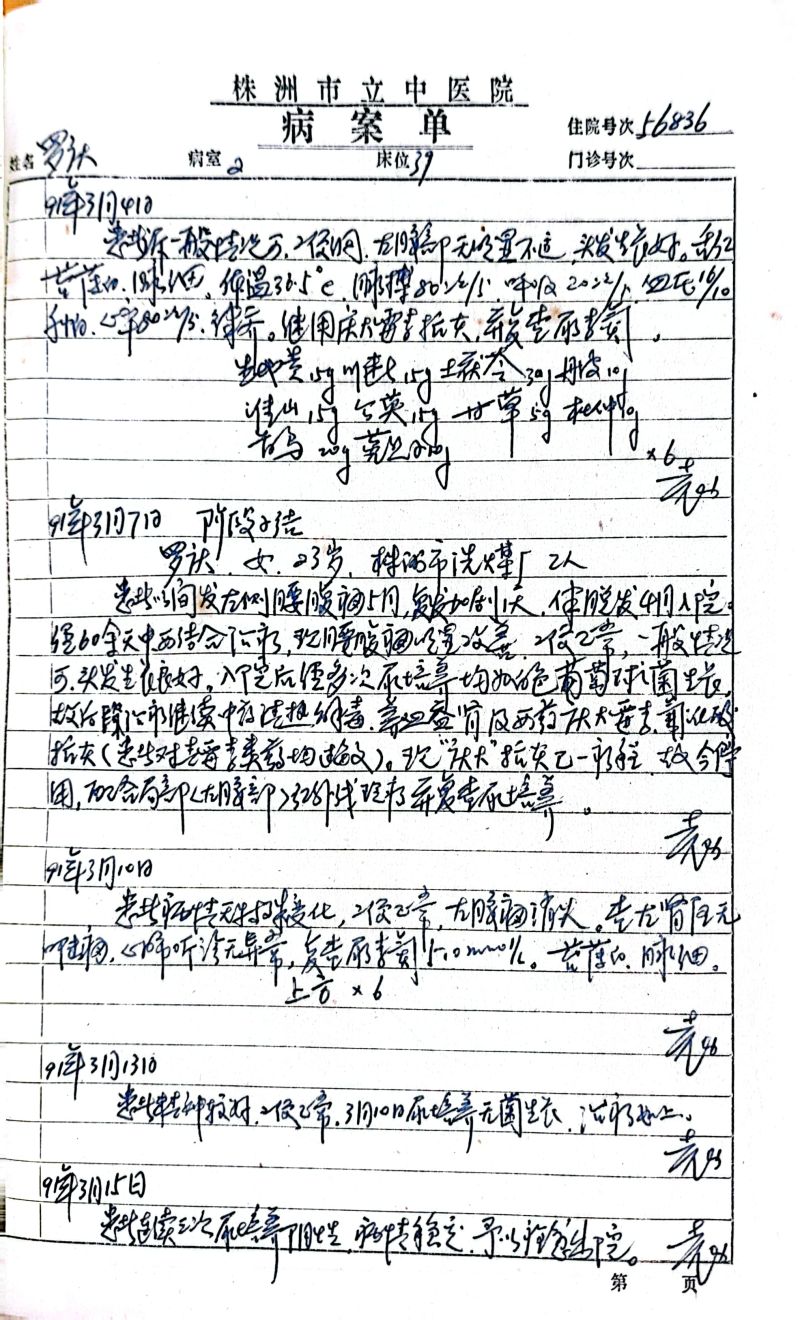 株洲市立中医院
病案单
住院号次 56836
姓名 罗 病室 2 床位 39 门诊号次
91年3月4日
患者 一般情况可,二便调,左腰部无明显不适,头发生长好。舌红
苔薄白,脉细,体温36.5°c,脉搏80次/分,呼吸20次/分,血压16/10
心率80次/分,律齐。继用庆大霉素抗炎,并复查尿素氮。
生地黄15g 川 15g 土茯苓30g 丹皮10g
淮山15g 公英15g 甘草5g 杜仲10g
20g
×6
91年3月7日 阶段小结
罗 女,23岁,株洲市洗煤厂工人
患者以间发左侧腰腹痛5月,复发加剧1天,伴脱发4月入院。
经60余天中西结合治疗,现腰腹痛明显改善,二便正常,一般情况
可,头发生长良好。入院后经多次尿培养均 色葡萄球菌生长,
故治 继续中药清热解毒, 肾及西药庆大霉素、
抗炎(患者对青霉素类药均过敏)。现"庆大"抗炎已一疗程,故今停
用,配合局部(左腰部) 外线理疗并复查尿培养。
91年3月10日
患者病情无特殊变化,二便正常,左腰痛消失。查左肾区无
叩击痛,心肺听诊无异常,复查尿素氮5.0mmol/L。苔薄白,脉细。
上方×6
91年3月13日
患者精神较好,二便正常,3月10日尿培养无菌生长,治疗如上。
91年3月15日
患者连续三次尿培养阴性,病情稳定,予以痊愈出院。
第 页